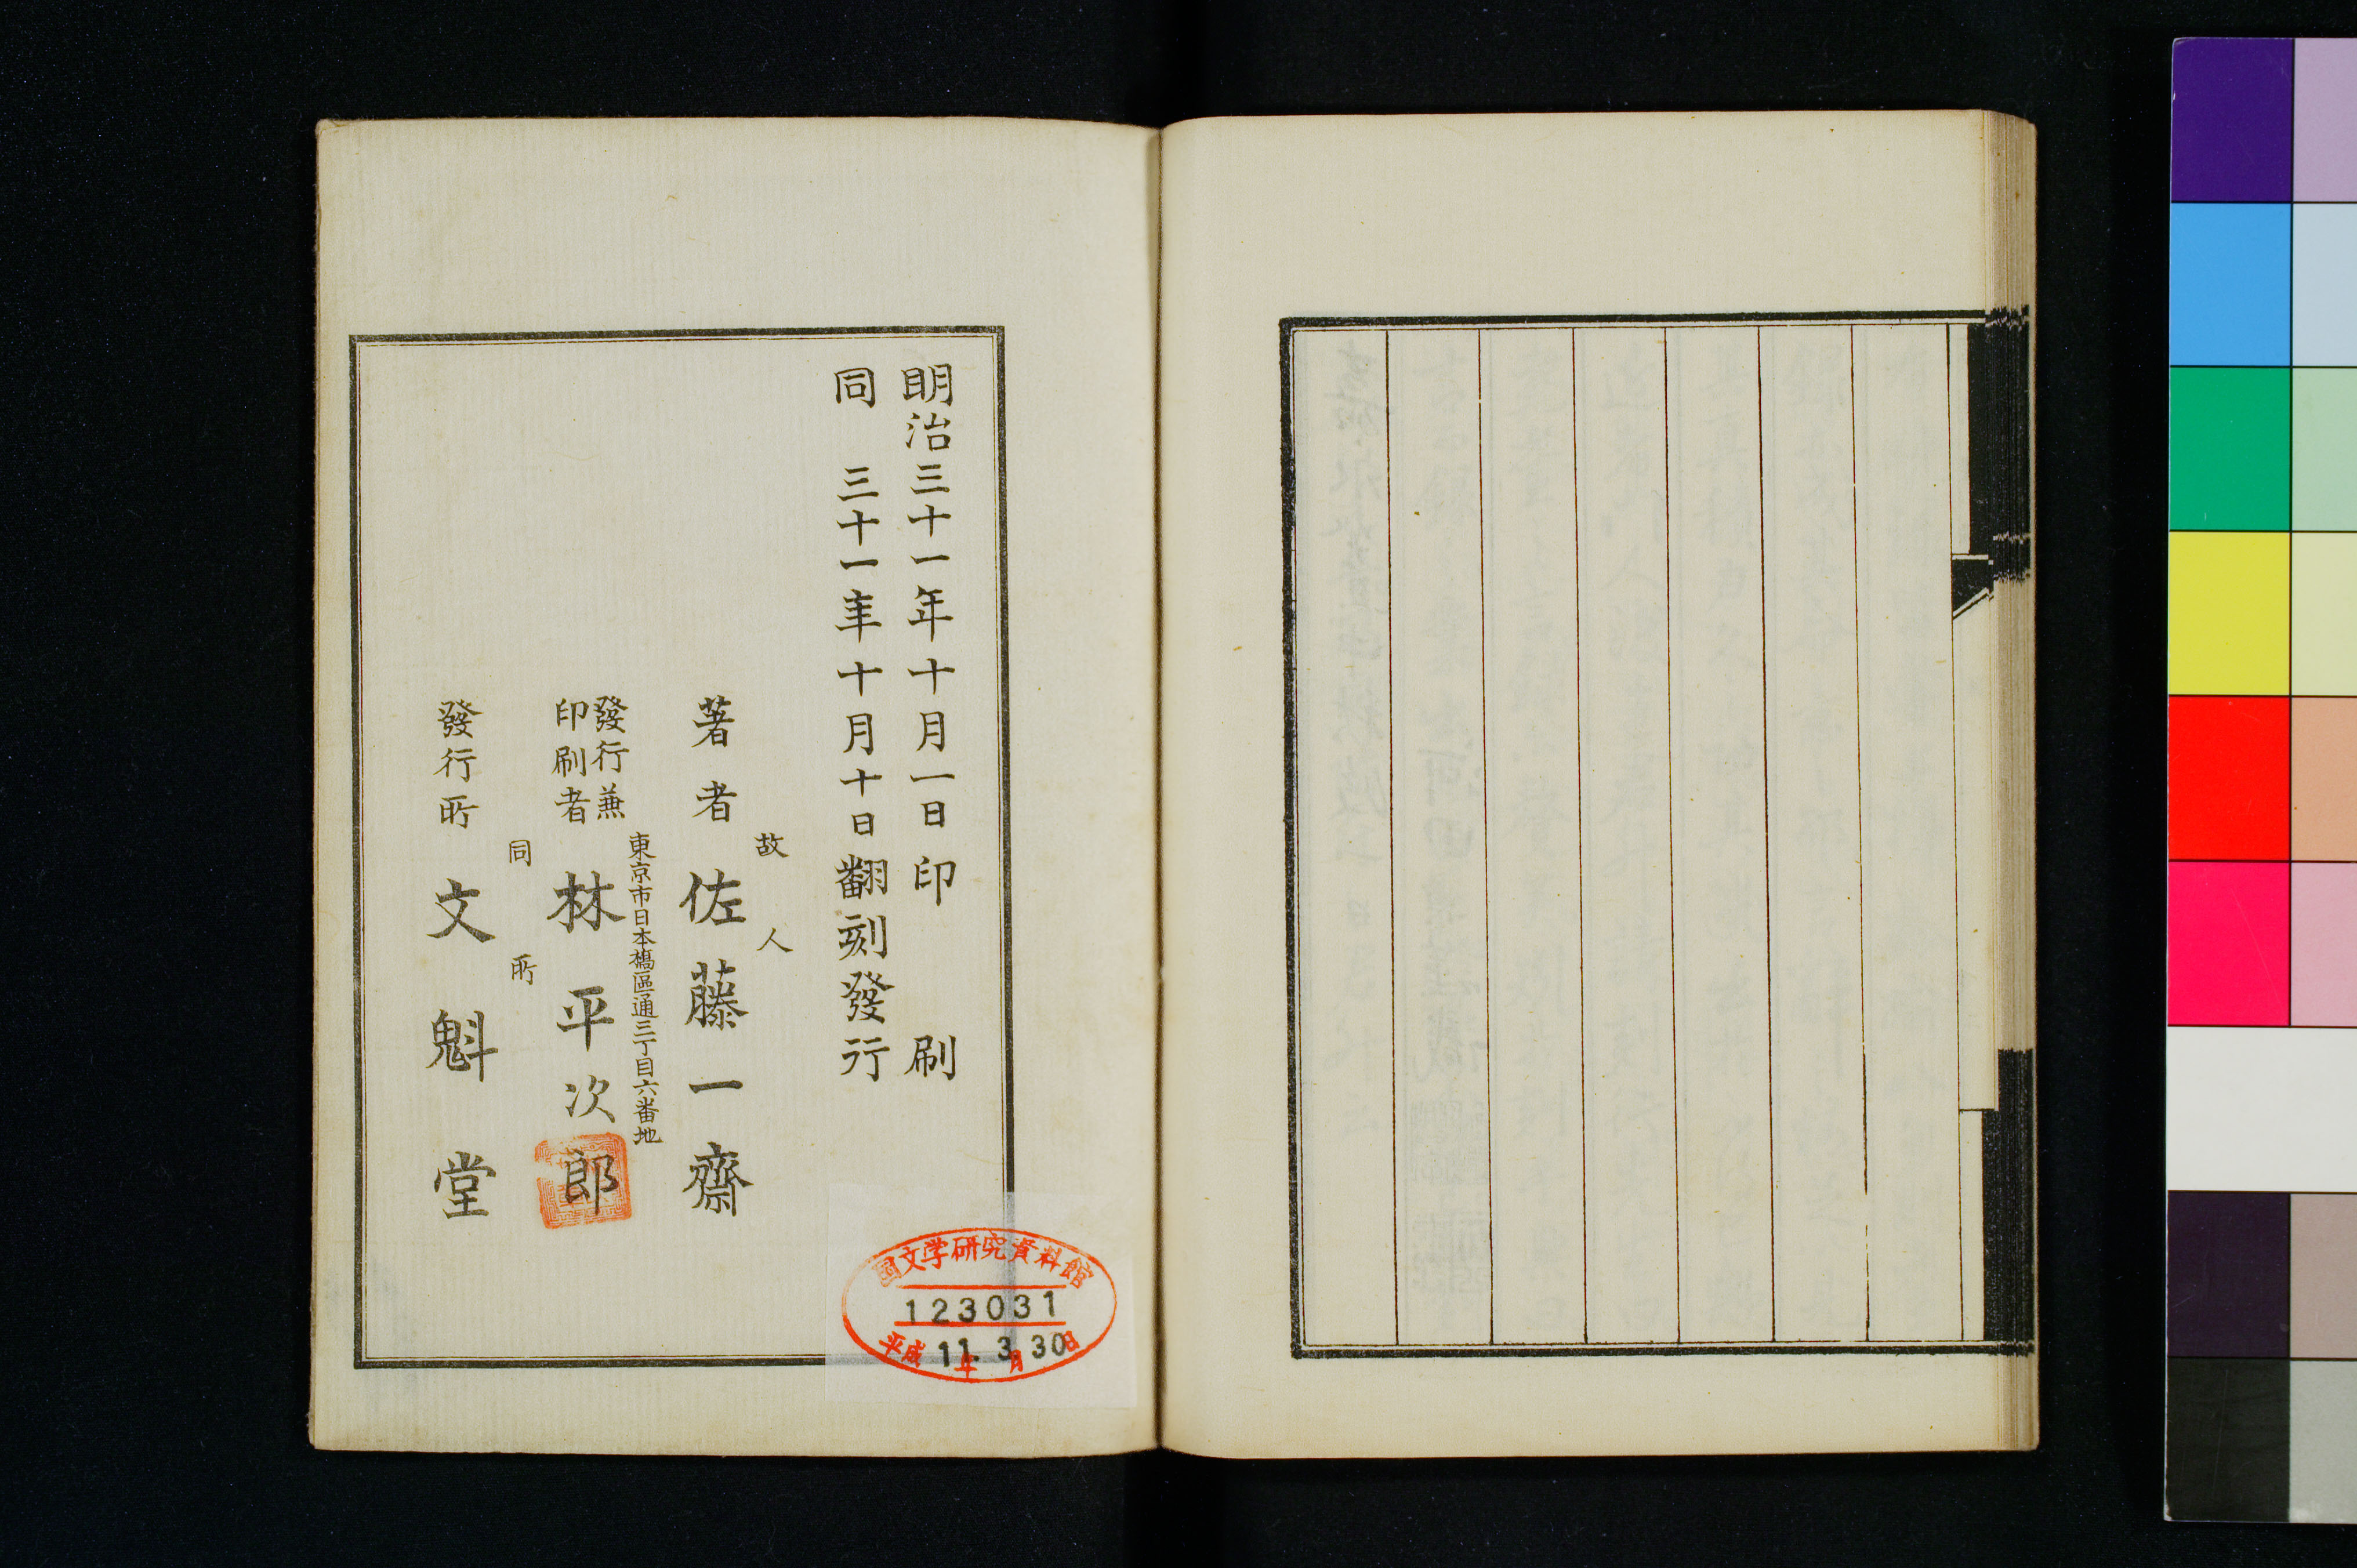 明治三十一年十月一日印刷
同 三十一年十月十日翻刻發行
故人
著者 佐藤一齋
東京市日本橋區通三丁目六番地
發行兼
印刷者 林平次郎
同所
發行所 文魁堂
国文学研究資料館
123031
平成11年3月30日